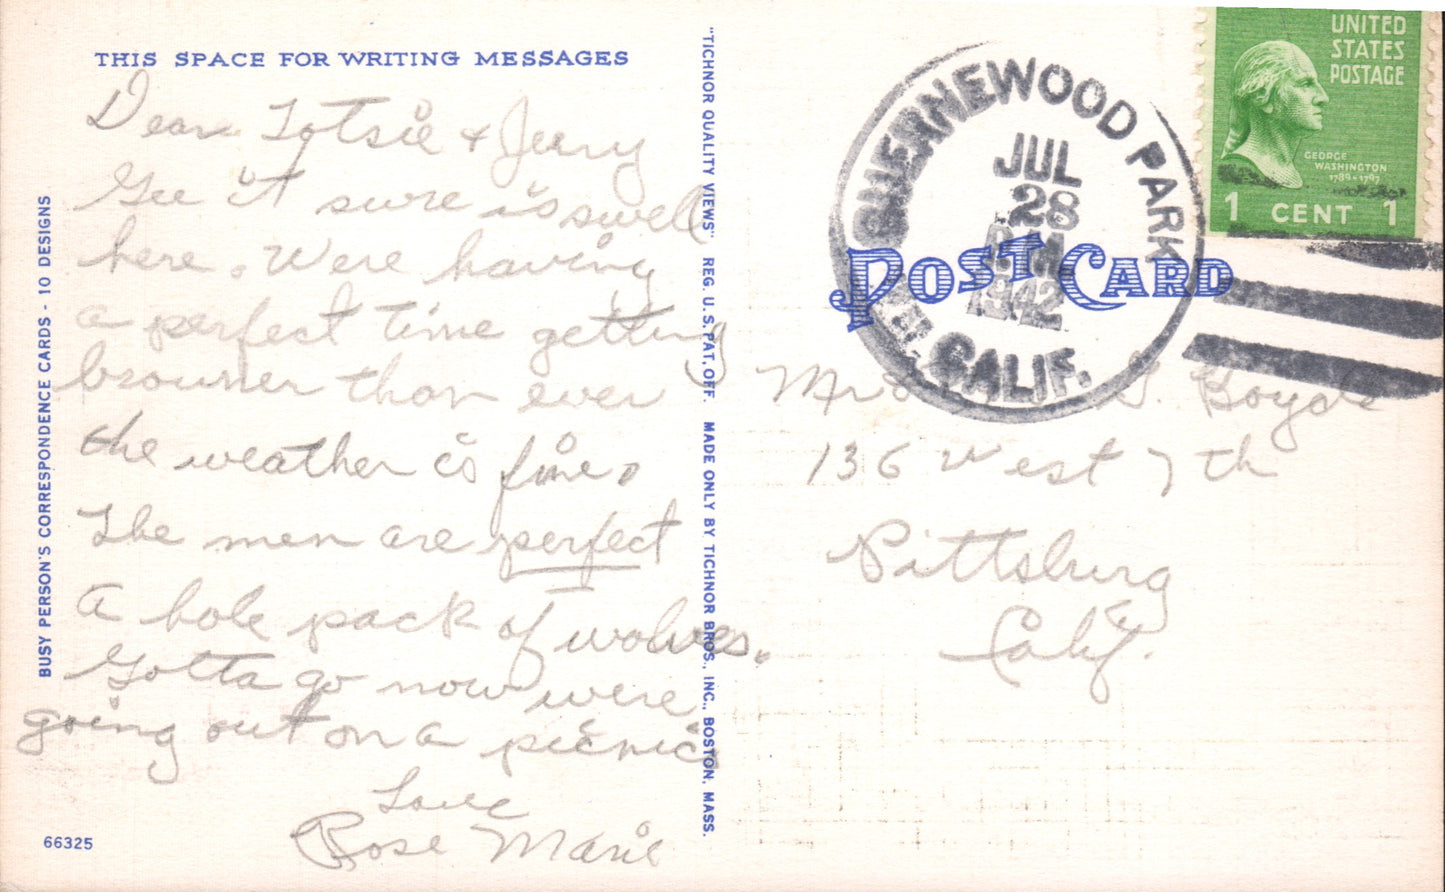 THIS SPACE FOR WRITING MESSAGES
Dear Totsie & Jerry
Gee it sure is swell
here. Were having
a perfect time getting
browner than ever
the weather is fine.
The men are perfect
a hole pack of wolves.
Gotta go now were
going out on a picnic
Love
Rose Marie
66325
BUSY PERSON'S CORRESPONDENCE CARDS - 10 DESIGNS
"TICHNOR QUALITY VIEWS" REG. U. S. PAT. OFF. MADE ONLY BY TICHNOR BROS., INC., BOSTON, MASS.
GUERNEWOOD PARK
JUL
28
PM
1942
CALIF.
UNITED
STATES
POSTAGE
GEORGE
WASHINGTON
1789-1797
1 CENT 1
POST CARD
G. Boyds
136 West 7th
Pittsburg
Calif.